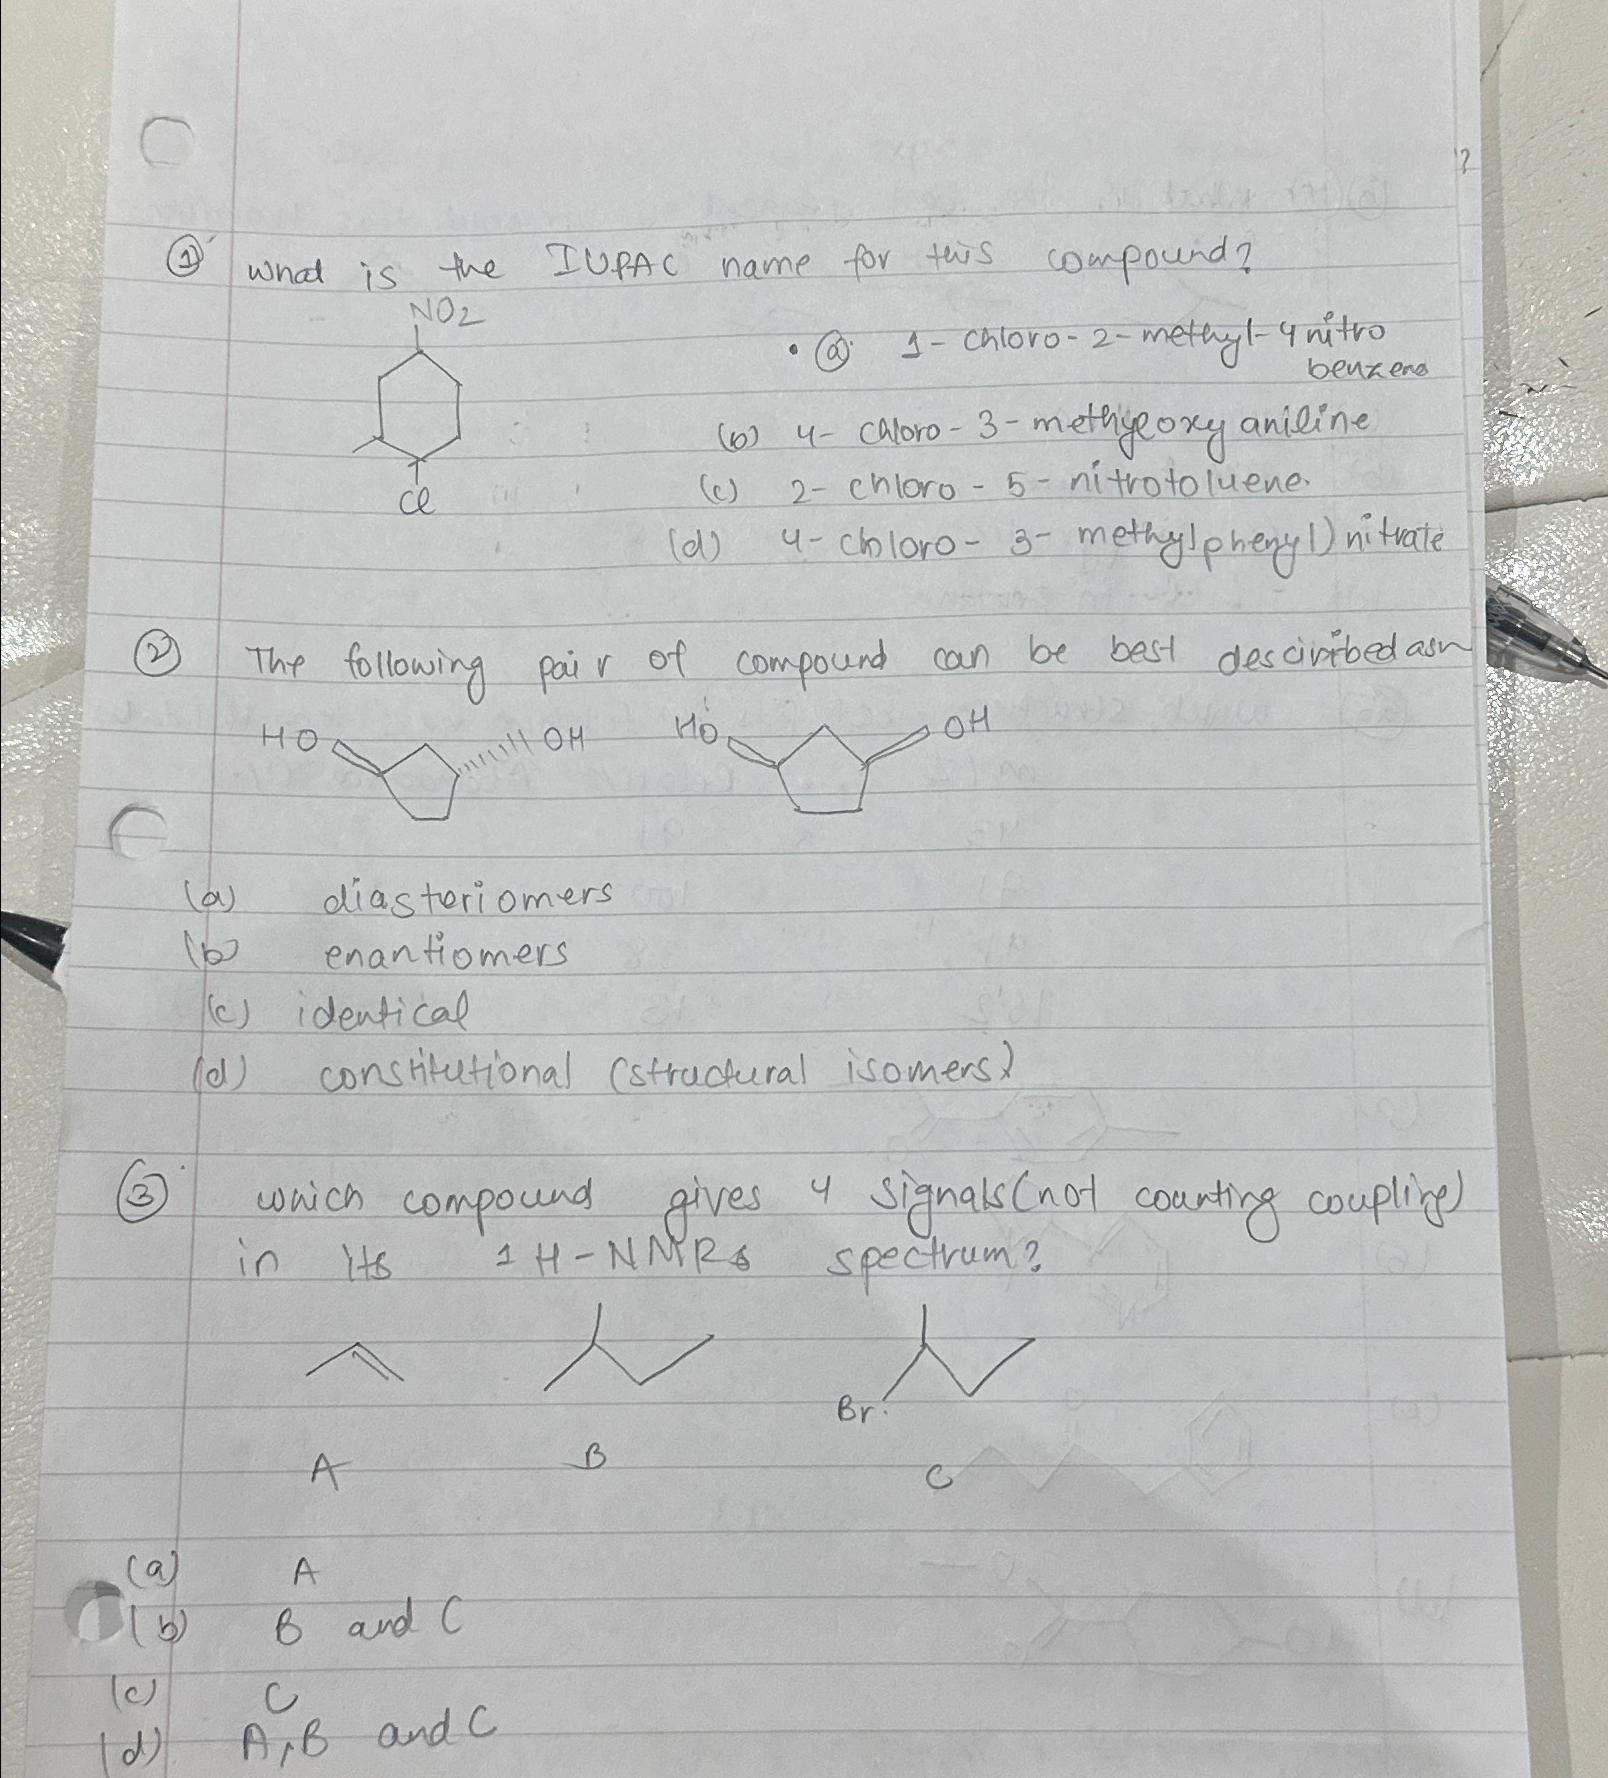 ?
① what is the IUPAC name for this compound?
NO2
• ⓐ 1- chloro-2-methyl-4 nitro
benzene
(b) 4- chloro-3-methyloxy aniline
(c) 2- chloro-5-nitrotoluene.
Cl
(d) 4-chloro-3-methylphenyl) nitrate
② The following pair of compound can be best desciribed asn
HO OH HO OH
(a) diasteriomers
(b) enantiomers
(c) identical
(d) constitutional (structural isomers)
③ which compound gives 4 signals (not counting coupling)
in its 1H-NMRs spectrum?
Br
A B C
(a) A
(b) B and C
(c) C
(d) A,B and C